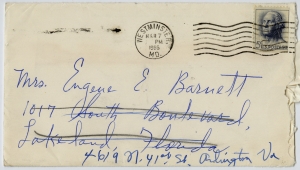 WESTMINSTER
MAR 7
PM
MD.
Mrs. Eugene E. Barnett
1017 South Boulevard,
Lakeland Florida.
4619 N. 41st St. Arlington Va